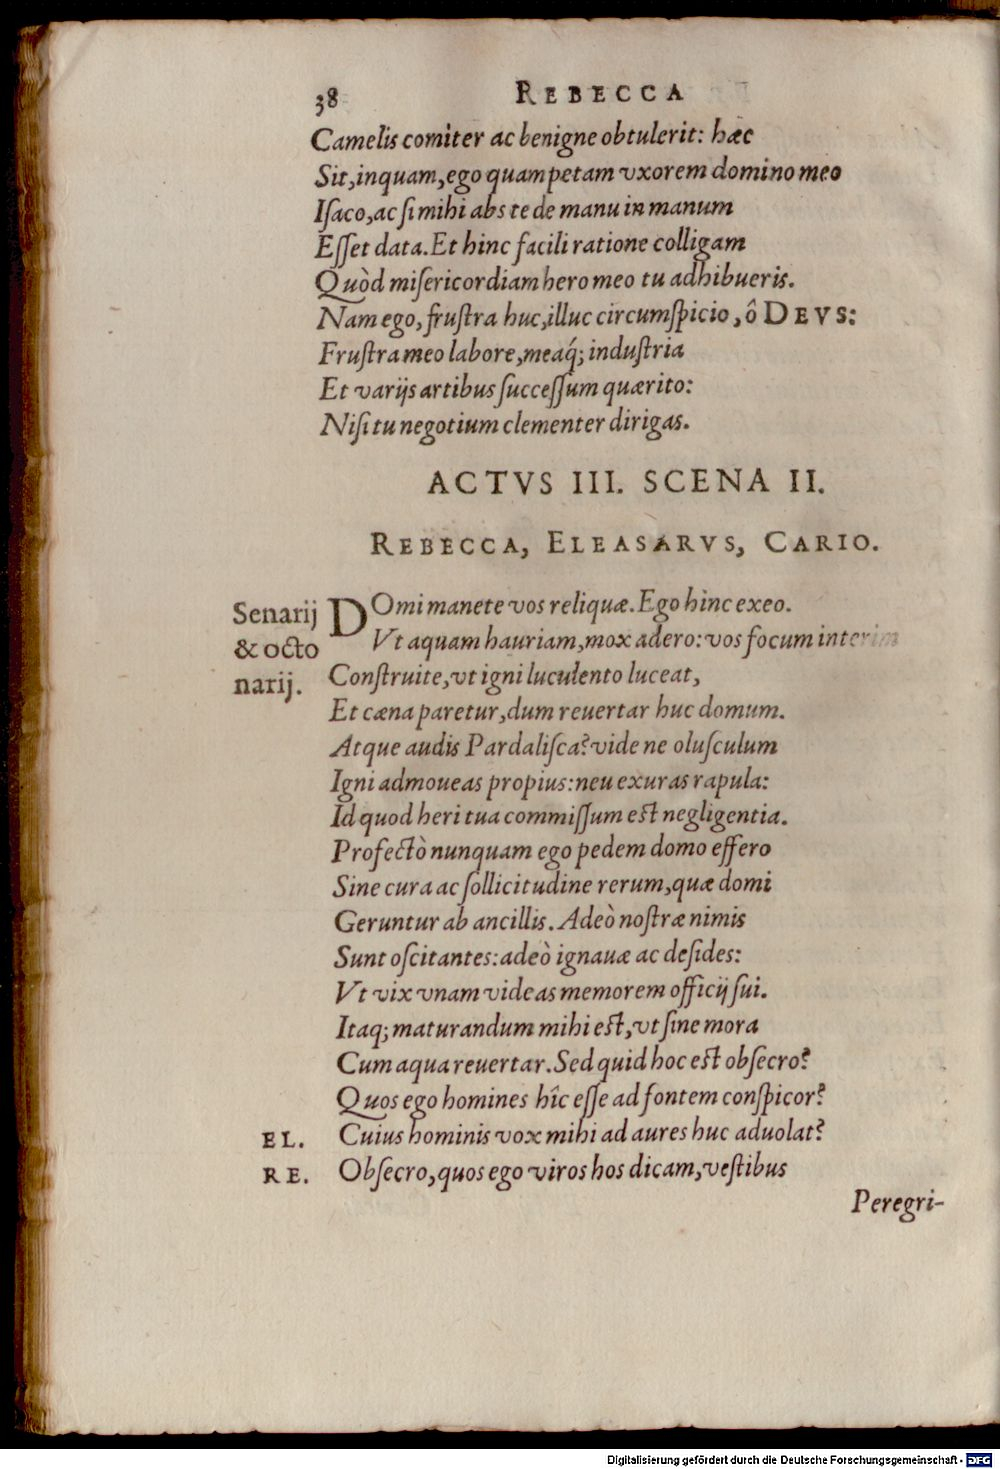 38 REBECCA
Camelis comiter ac benigne obtulerit: hæc
Sit, inquam, ego quam petam vxorem domino meo
Iſaco, ac ſi mihi abs te de manu in manum
Eſſet data. Et hinc facili ratione colligam
Quòd miſericordiam hero meo tu adhibueris.
Nam ego, fruſtra huc, illuc circumſpicio, ô DEVS:
Fruſtra meo labore, meaq́; induſtria
Et varijs artibus ſucceſſum quærito:
Niſi tu negotium clementer dirigas.
ACTVS III. SCENA II.
REBECCA, ELEASARVS, CARIO.
Senarij & octo narij.
DOmi manete vos reliquæ. Ego hinc exeo.
Vt aquam hauriam, mox adero: vos focum interim
Conſtruite, vt igni luculento luceat,
Et cæna paretur, dum reuertar huc domum.
Atque audis Pardaliſca? vide ne oluſculum
Igni admoueas propius: neu exuras rapula:
Id quod heri tua commiſſum eſt negligentia.
Profectò nunquam ego pedem domo effero
Sine cura ac ſollicitudine rerum, quæ domi
Geruntur ab ancillis. Adeò noſtræ nimis
Sunt oſcitantes: adeò ignauæ ac deſides:
Vt vix vnam videas memorem officij ſui.
Itaq; maturandum mihi eſt, vt ſine mora
Cum aqua reuertar. Sed quid hoc eſt obſecro?
Quos ego homines hîc eſſe ad fontem conſpicor?
EL. Cuius hominis vox mihi ad aures huc aduolat?
RE. Obſecro, quos ego viros hos dicam, veſtibus
Peregri-
Digitalisierung gefördert durch die Deutsche Forschungsgemeinschaft - DFG